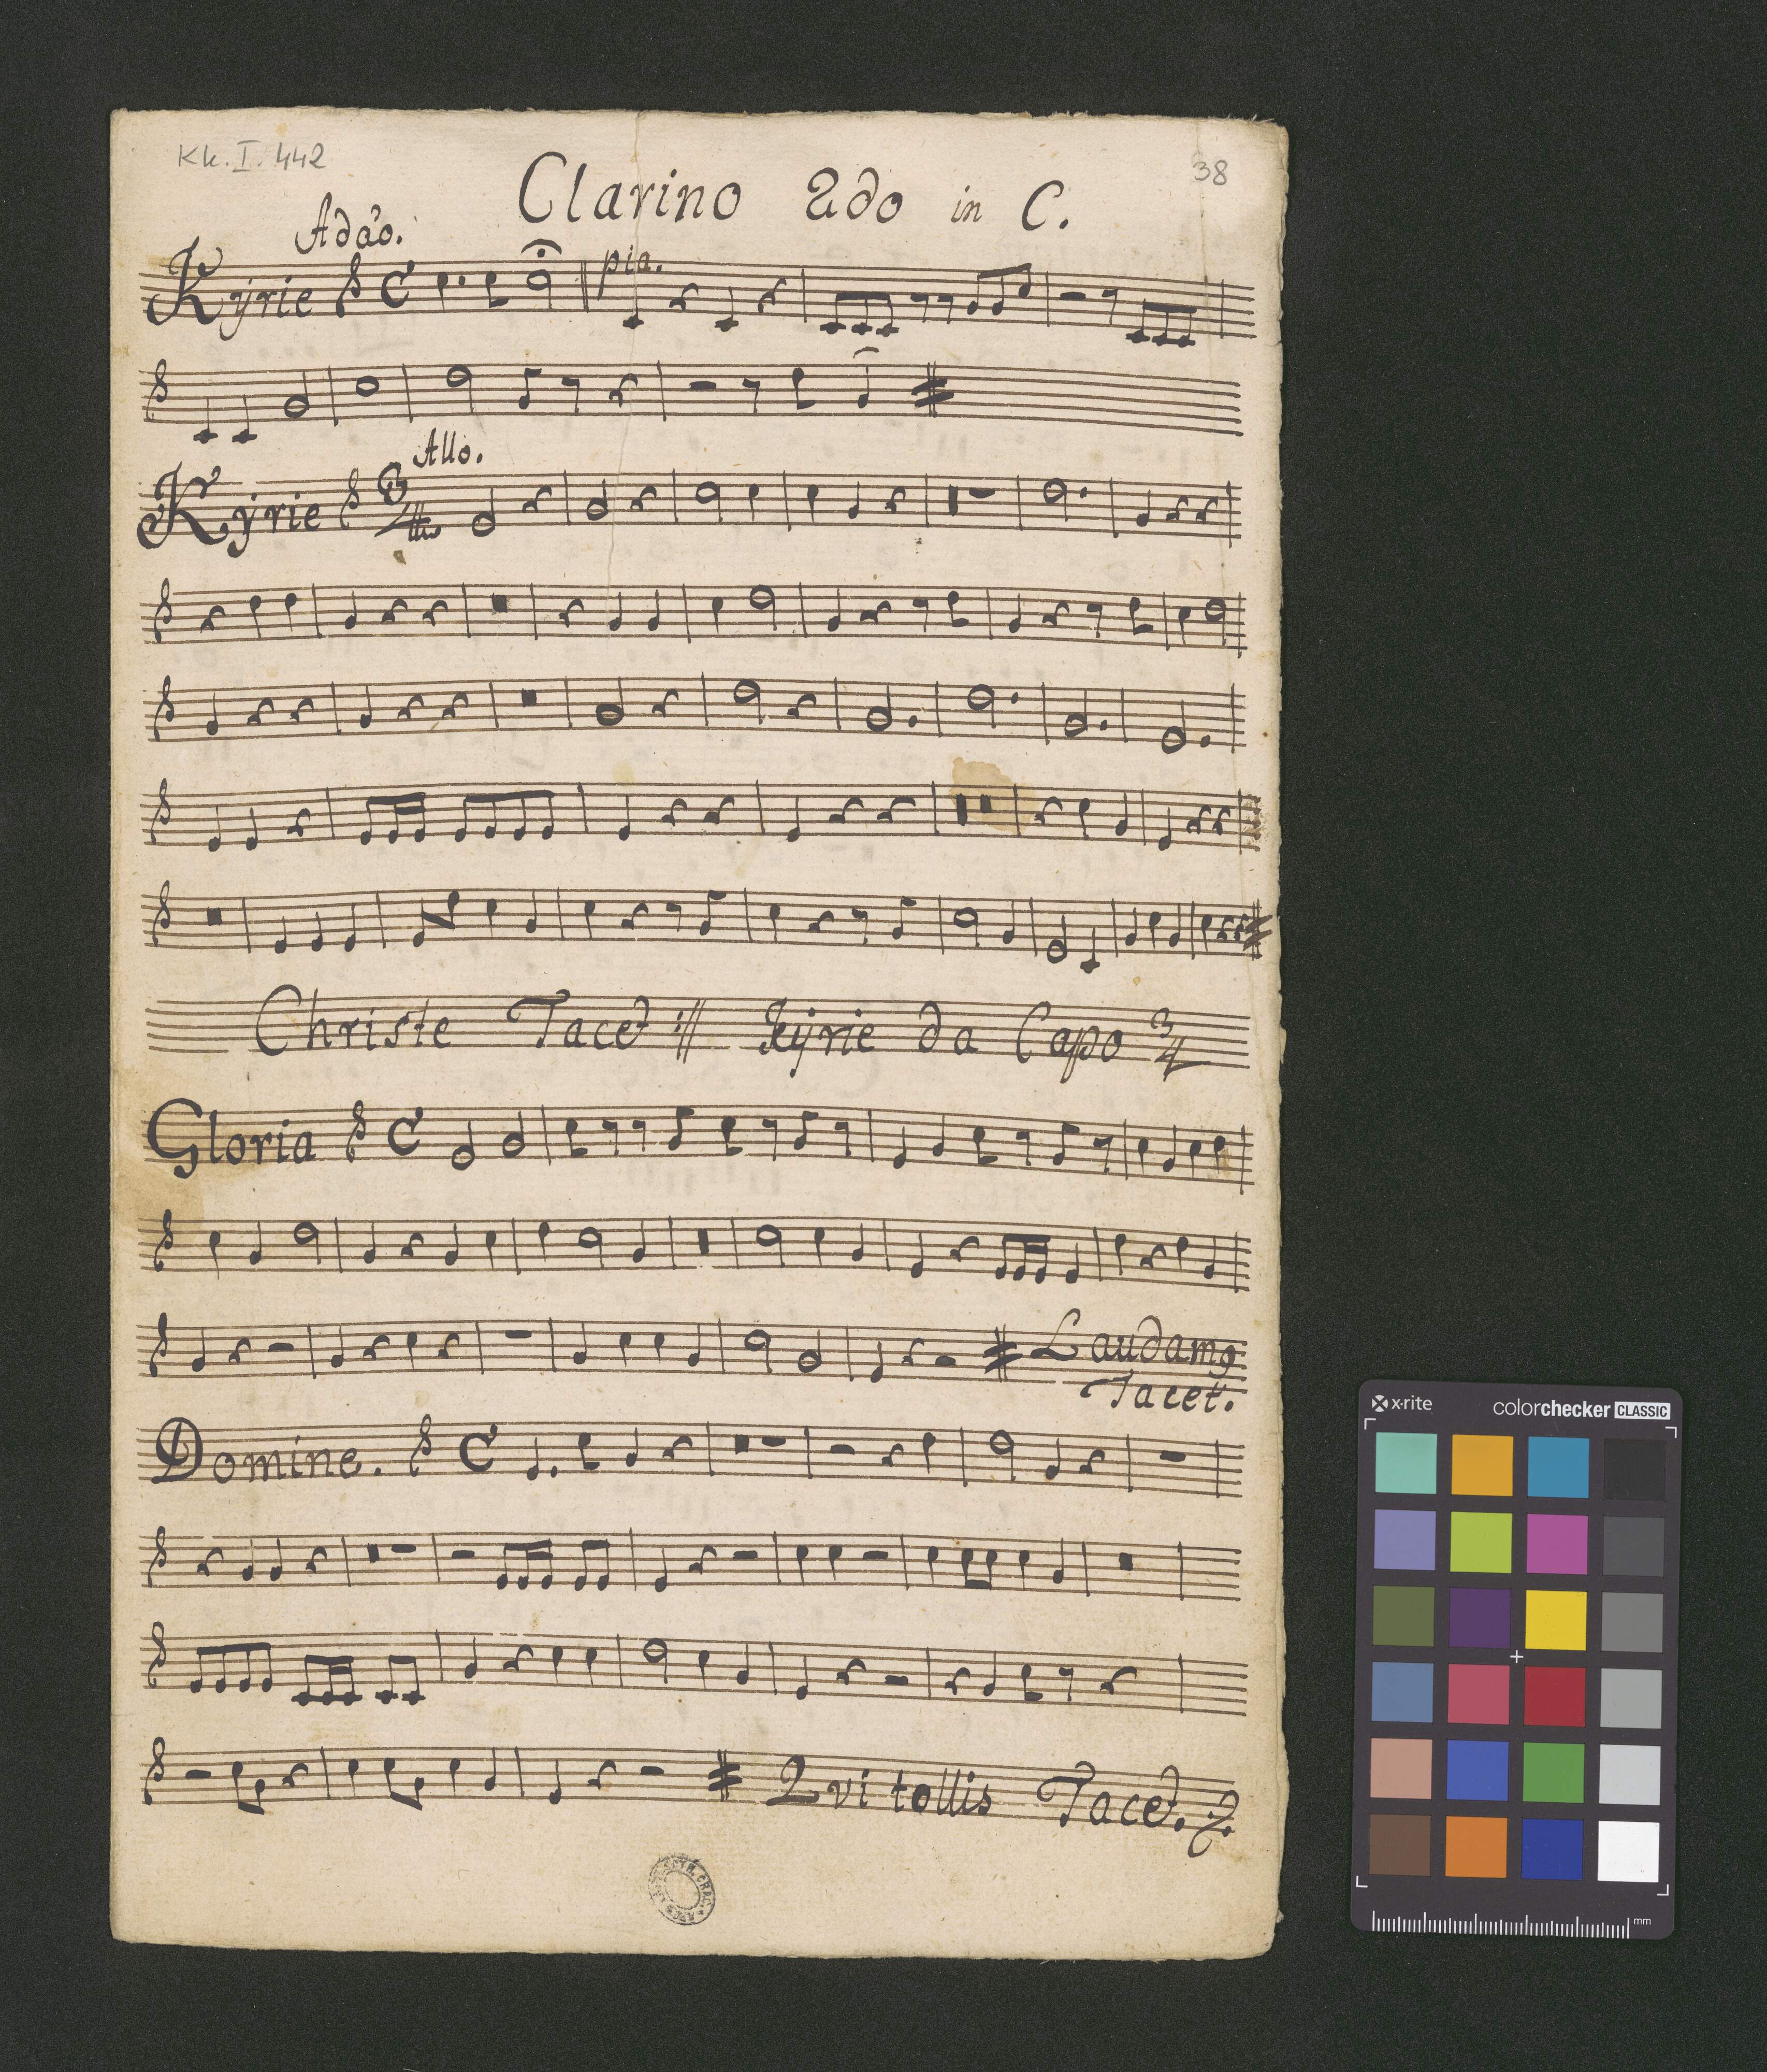 Kk. I. 442
38
Clarino 2do in C.
Adåo.
Kyrie
pia.
Allo.
Kyrie 3/4
Christe Tacet :// Kyrie da Capo 3/4
Gloria
Laudamꝯ
Tacet.
Domine.
Qvi tollis Tacet.
x·rite
colorchecker CLASSIC
mm